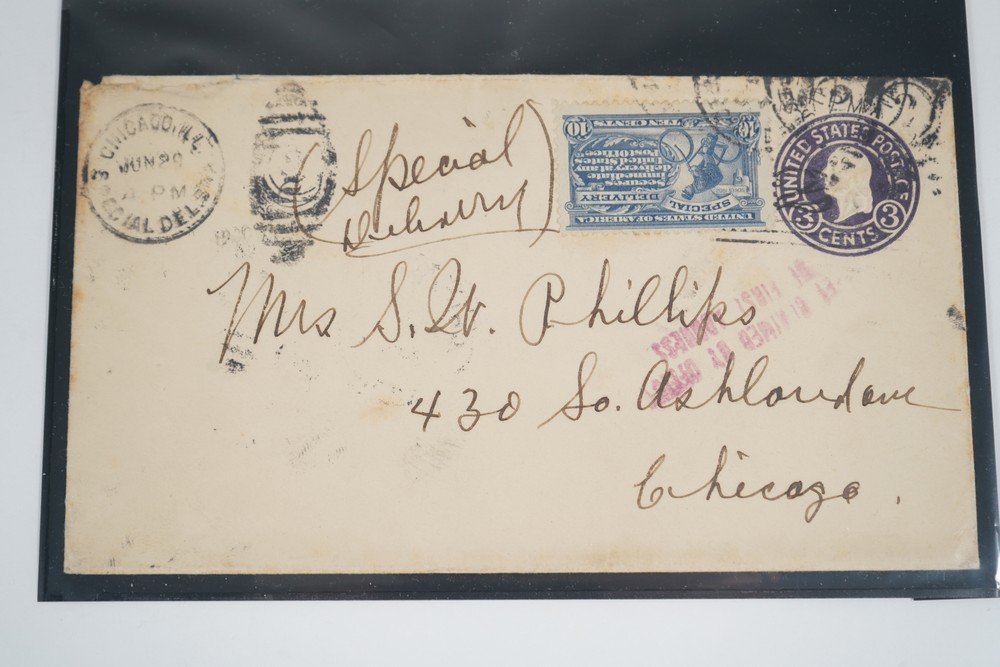 CHICAGO, ILL.
JUN 20
4 PM
SPECIAL DEL. STA.
(Special
Delivery)
10 TEN CENTS 10
Secures
immediate
delivery at any
United States
Post office
SPECIAL
DELIVERY
UNITED STATES OF AMERICA
PM
UNITED STATES POSTAGE
3 CENTS 3
Mrs S. W. Phillips
430 So. Ashland ave
Chicago.
AT FIRST ADDRESS